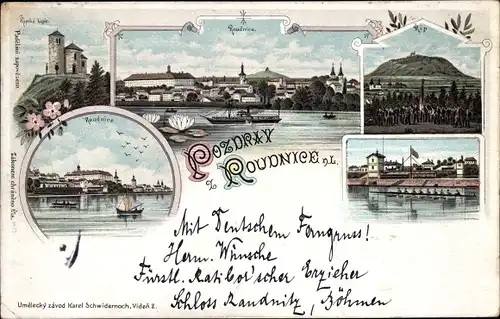 Roudnice.
Říp
Roudnice
POZDRAV
z ROUDNICE n/L.
Mit Deutschem Ferngruss!
Herm. Wünsche
Fürstl. Ratibor'scher Erzieher
Schloss Raudnitz, Böhmen
Umělecký závod Karel Schwidernoch, Vídeň 2.